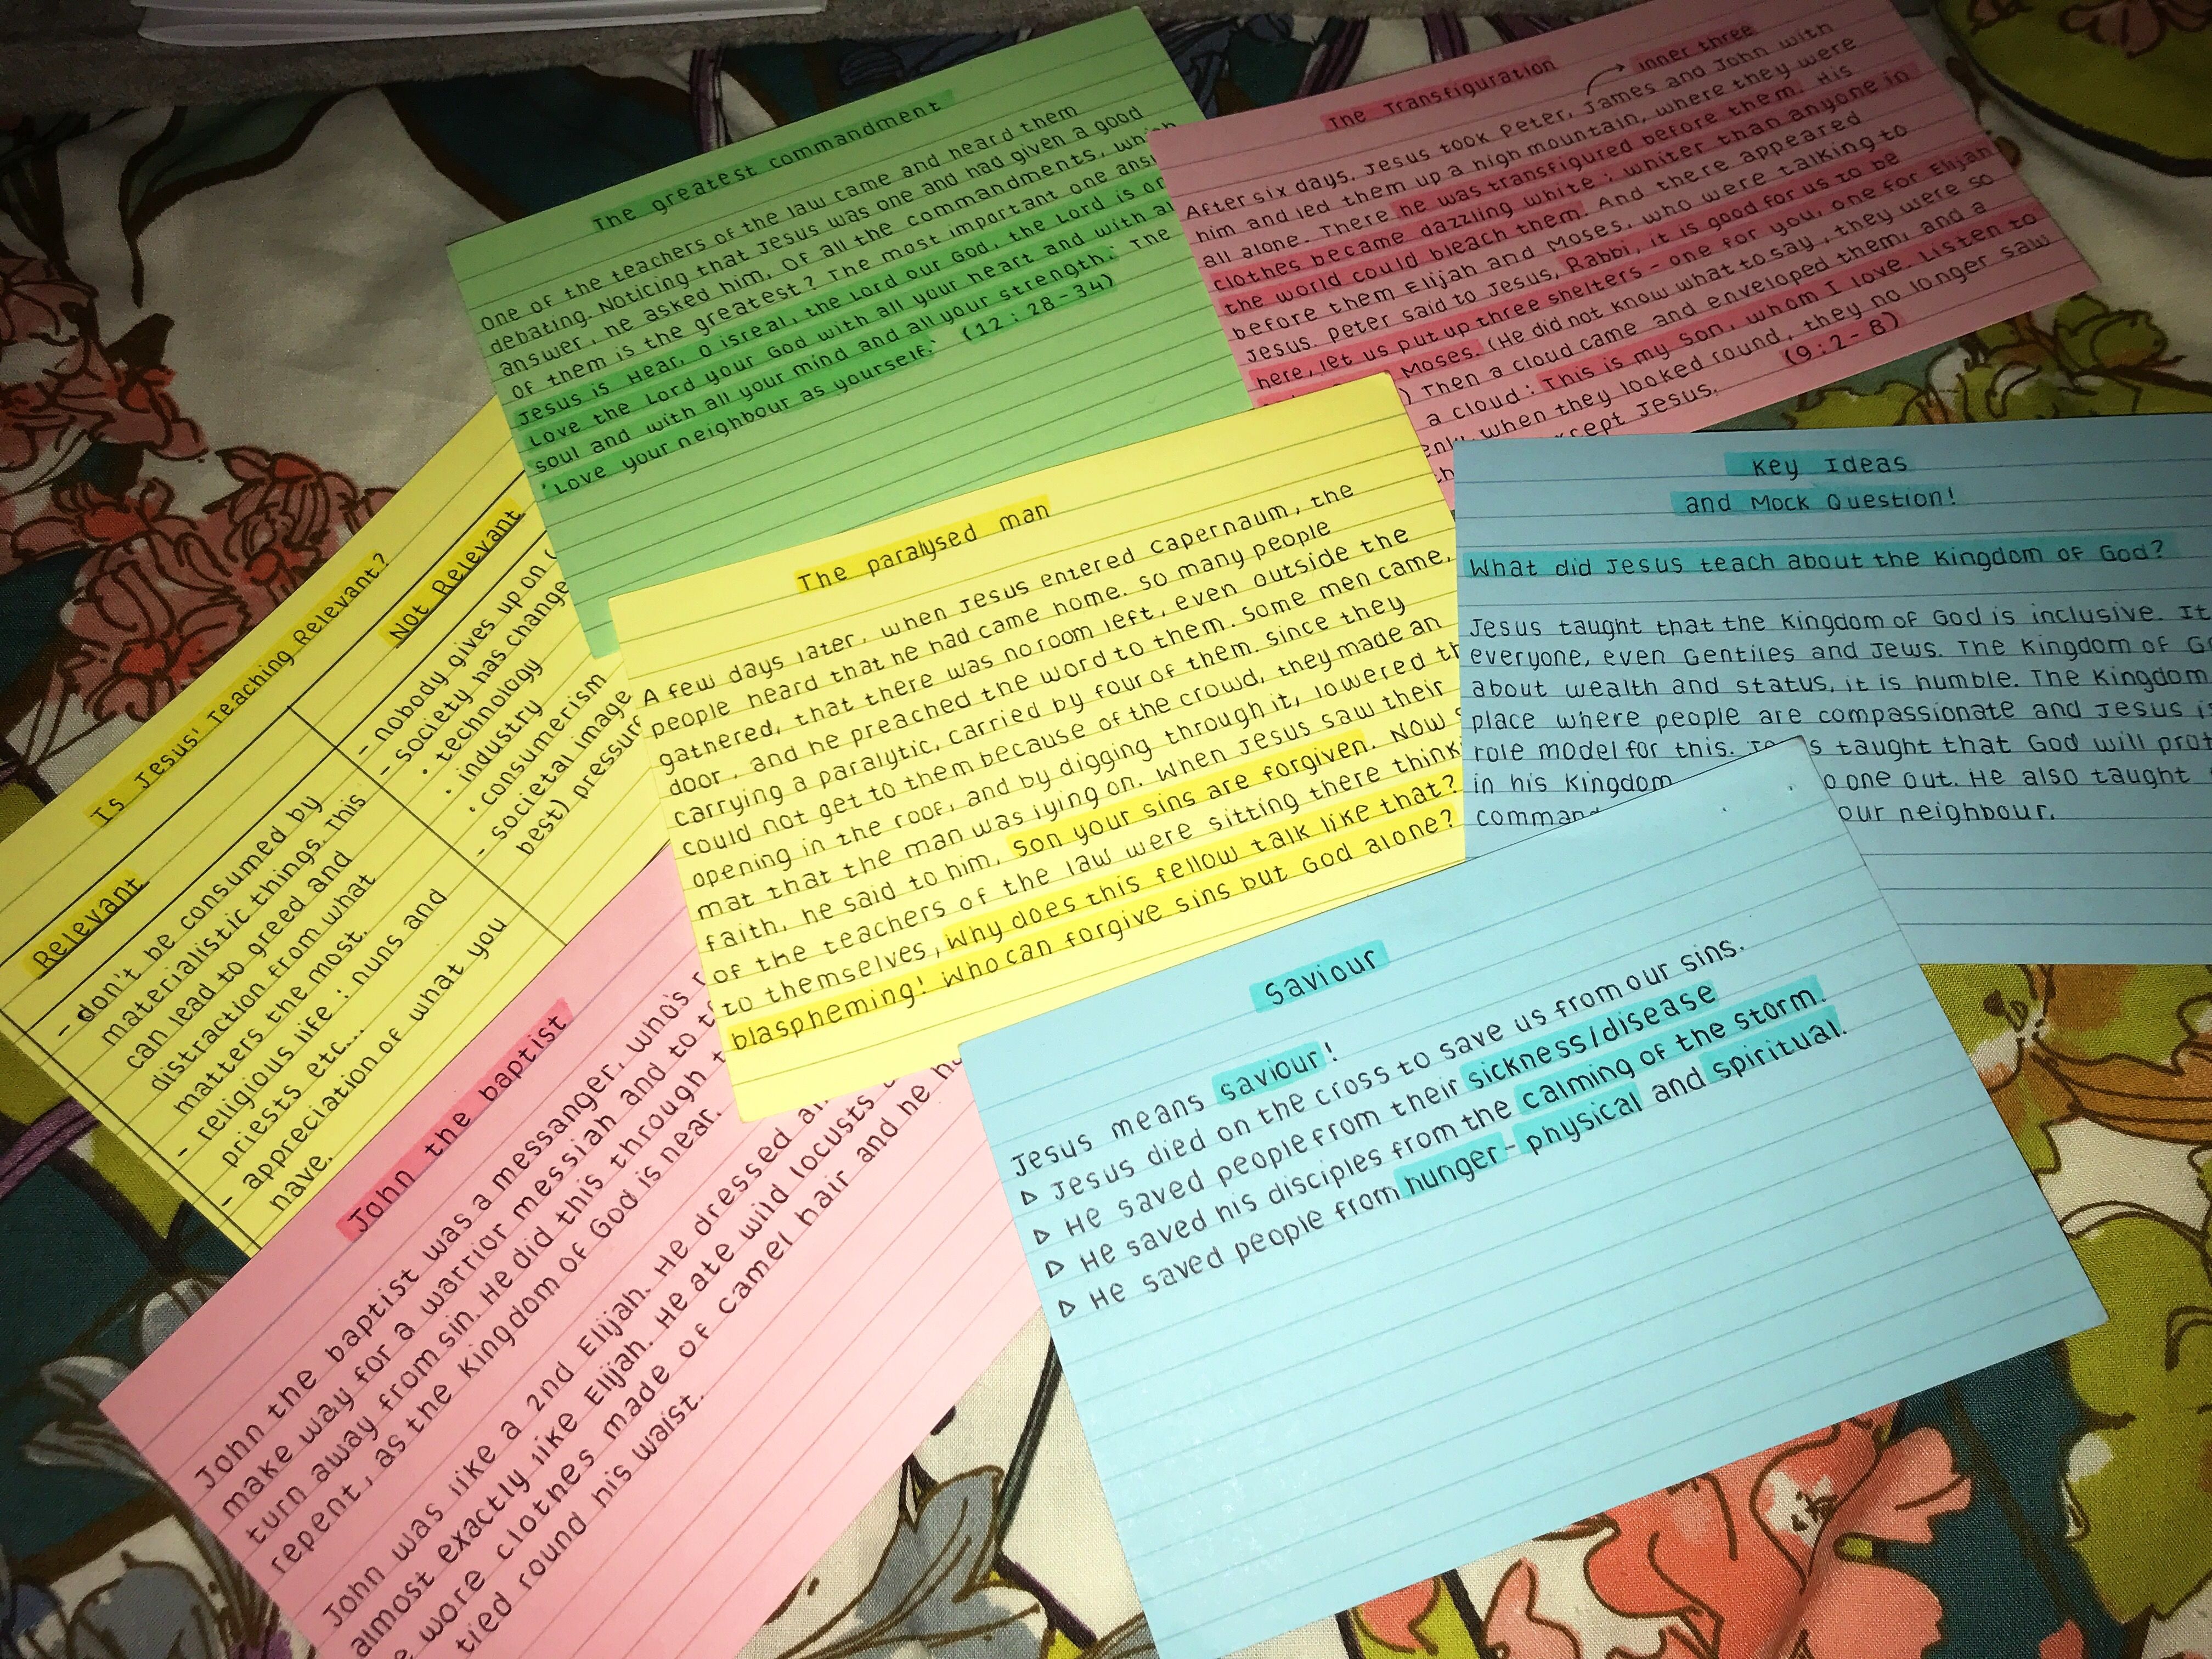 The greatest commandment
one of the teachers of the law came and heard them
debating. Noticing that Jesus was one and had given a good
answer, he asked him, Of all the commandments, which
of them is the greatest? The most important one
Jesus is Hear, O isreal, the Lord our God, the Lord is
Love the Lord your God with all your heart and with
soul and with all your mind and all your strength: The
'Love your neighbour as yourself.' (12:28-34)
The Transfiguration
inner three
After six days, Jesus took Peter, James and John with
him and led them up a high mountain, where they were
all alone. There he was transfigured before them. His
clothes became dazzling white; whiter than anyone in
the world could bleach them. And there appeared
before them Elijah and Moses, who were talking to
Jesus. Peter said to Jesus, Rabbi, it is good for us to be
here, let us put up three shelters - one for you, one for Elijah
Moses. (He did not know what to say, they were so
) Then a cloud came and enveloped them, and a
a cloud: This is my Son, whom I love. Listen to
when they looked round, they no longer saw
except Jesus. (9:2-8)
Is Jesus' Teaching Relevant?
Relevant
- don't be consumed by
materialistic things. This
can lead to greed and
distraction from what
matters the most.
- religious life: nuns and
priests etc...
- appreciation of what you
have.
Not Relevant
- nobody gives up on
- society has change
· technology
· industry
· consumerism
- societal image
best) pressure
The paralysed man
A few days later, when Jesus entered Capernaum, the
people heard that he had came home. So many people
gathered, that there was no room left, even outside the
door, and he preached the word to them. Some men came,
carrying a paralytic, carried by four of them. Since they
could not get to them because of the crowd, they made an
opening in the roof, and by digging through it, lowered
mat that the man was lying on. When Jesus saw their
faith, he said to him, Son your sins are forgiven. Now
of the teachers of the law were sitting there think
to themselves, Why does this fellow talk like that?
blaspheming! Who can forgive sins but God alone?
Key Ideas
and Mock Question!
What did Jesus teach about the Kingdom of God?
Jesus taught that the Kingdom of God is inclusive. It
everyone, even Gentiles and Jews. The Kingdom of G
about wealth and status, it is humble. The Kingdom
place where people are compassionate and Jesus is
role model for this. taught that God will prot
in his Kingdom one out. He also taught
comman our neighbour.
John the baptist
John the baptist was a messanger, who's
make way for a warrior messiah and to
turn away from sin. He did this through
repent, as the Kingdom of God is near.
John was like a 2nd Elijah. He dressed
almost exactly like Elijah. He ate wild locusts
wore clothes made of camel hair and he
tied round his waist.
Saviour
Jesus means saviour!
▷ Jesus died on the cross to save us from our sins.
▷ He saved people from their sickness/disease
▷ He saved his disciples from the calming of the storm.
▷ He saved people from hunger - physical and spiritual.